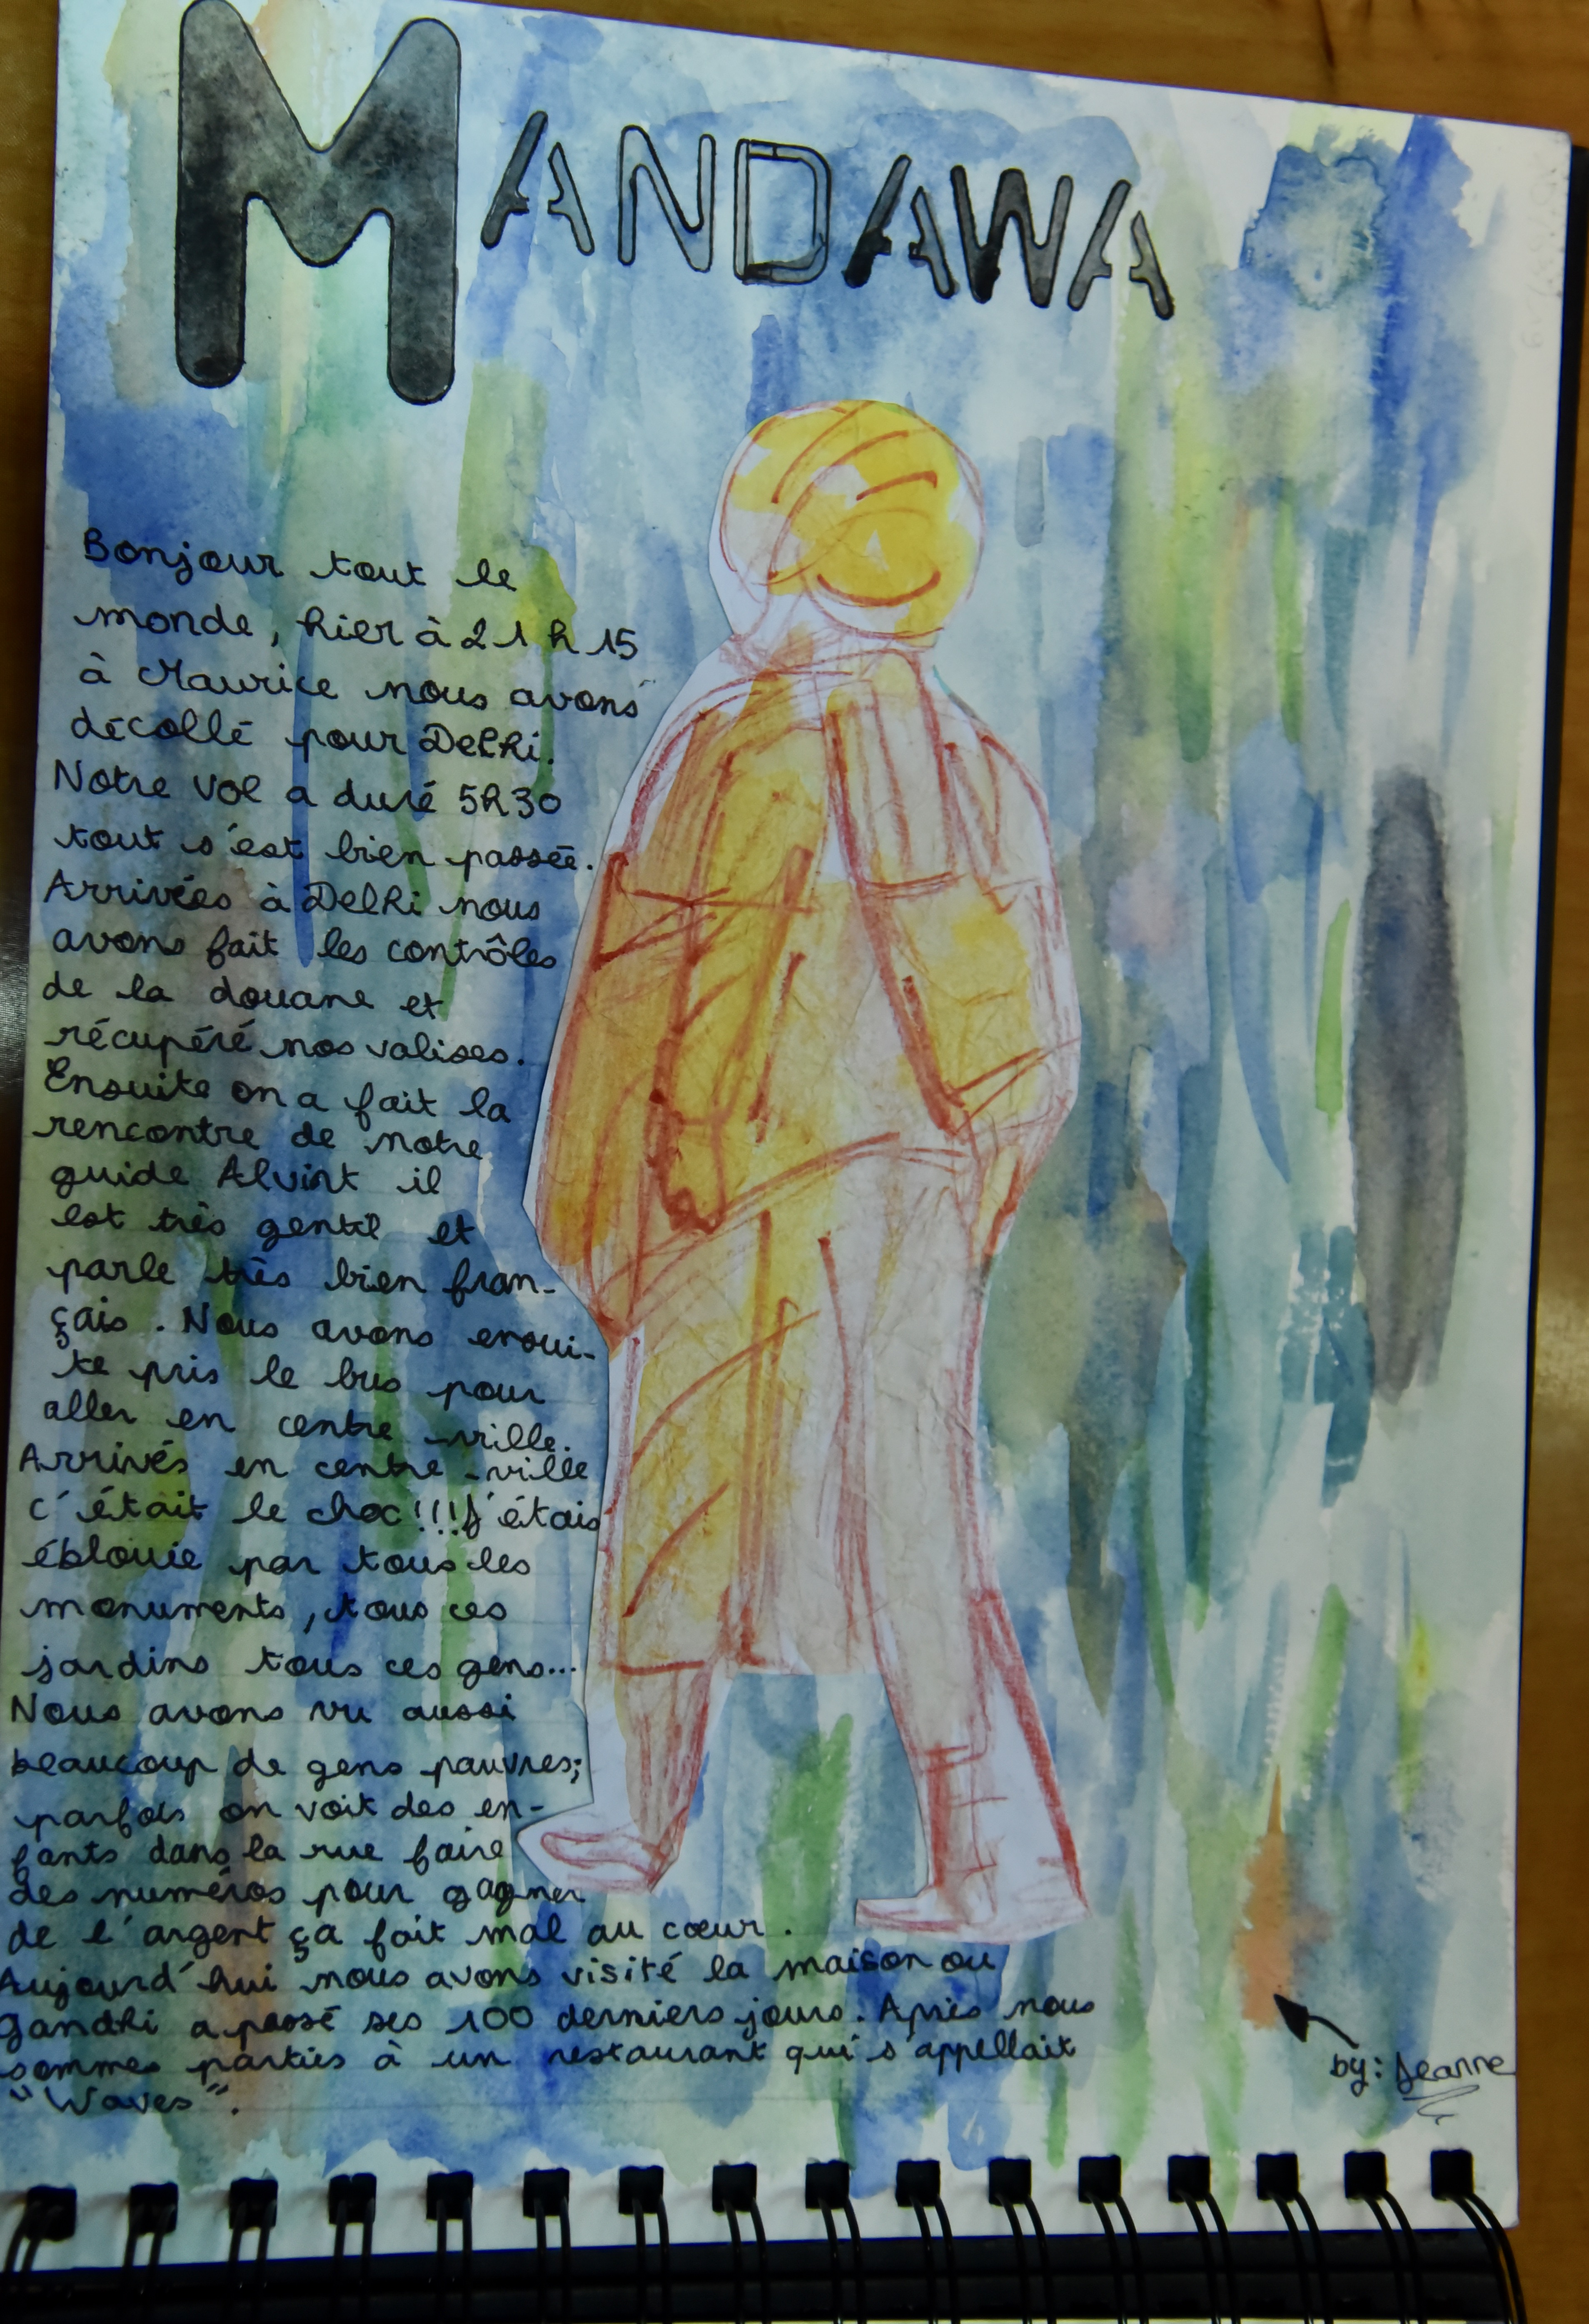 MANDAWA
Bonjour tout le
monde, hier à 21 h 15
à Maurice nous avons
décollé pour Delhi.
Notre vol a duré 5h30
tout s'est bien passée.
Arrivées à Delhi nous
avons fait les contrôles
de la douane et
récupéré nos valises.
Ensuite on a fait la
rencontre de notre
guide Alvint il
est très gentil et
parle très bien fran-
çais. Nous avons ensui-
te pris le bus pour
aller en centre-ville.
Arrivés en centre-ville
c'était le choc!!! J'étais
éblouie par tous les
monuments, tous ces
jardins tous ces gens...
Nous avons vu aussi
beaucoup de gens pauvres;
parfois on voit des en-
fants dans la rue faire
des numéros pour gagner
de l'argent ça fait mal au cœur.
Aujourd'hui nous avons visité la maison ou
Gandhi a passé ses 100 derniers jours. Après nous
sommes parties à un restaurant qui s'appellait
"Waves".
by: Jeanne